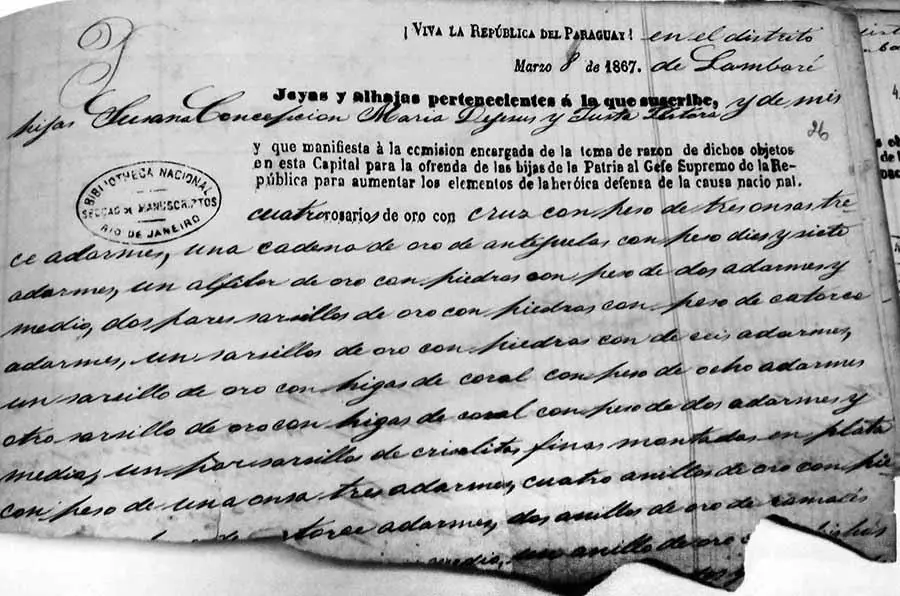 ¡VIVA LA REPÚBLICA DEL PARAGUAY! en el distrito
Marzo 8 de 1867. de Lambaré
Joyas y alhajas pertenecientes á la que suscribe, y de mis
hijas Susana Concepcion Maria Dejesus y Justa
26
y que manifiesta à la comision encargada de la toma de razon de dichos objetos
en esta Capital para la ofrenda de las hijas de la Patria al Gefe Supremo de la Re-
pública para aumentar los elementos de la heróica defensa de la causa nacional.
BIBLIOTHECA NACIONAL
SECÇÃO DE MANUSCRIPTOS
RIO DE JANEIRO
cuatro rosarios de oro con cruz con peso de tres onsas tre-
ce adarmes, una cadena de oro de antejuelas con peso dies y siete
adarmes, un alfiler de oro con piedras con peso de dos adarmes y
medio, dos pares sarsillos de oro con piedras con peso de catorce
adarmes, un sarsillos de oro con piedras con de seis adarmes,
un sarcillo de oro con higas de coral con peso de ocho adarmes
otro sarsillo de oro con higas de coral con peso de dos adarmes y
media, un par sarsillo de crisolitas finas montadas en plata
con peso de una onsa tres adarmes, cuatro anillos de oro con pie
adarmes, dos anillos de oro de ramales
medio, un anillo de oro